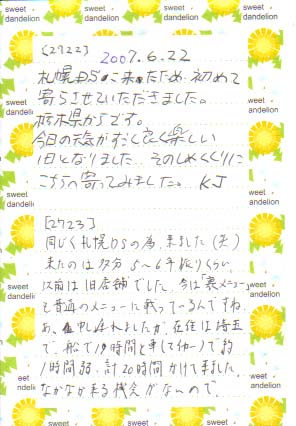 sweet dandelion
sweet dandelion
[2722]
2007.6.22
札幌DSに来たため、初めて
寄らせていただきました。
栃木県からです。
今日の天気がすごく良く楽しい
1日となりました。そのしめくくりに
こちらへ寄ってみました。 KJ
[2723]
同じく札幌DSの為、来ました(笑)
来たのは多分5〜6年振りくらい
以前は旧店舗でした。今は「裏メニュー」
も普通のメニューに載っているんですね。
あ、申し遅れましたが、在住は埼玉
で、船で19時間と車して
1時間弱、計20時間かけて来ました。
なかなか来る機会がないので、
sweet dandelion
sweet dandelion
sweet dandelion
sweet dandelion
sweet dandelion
sweet dandelion